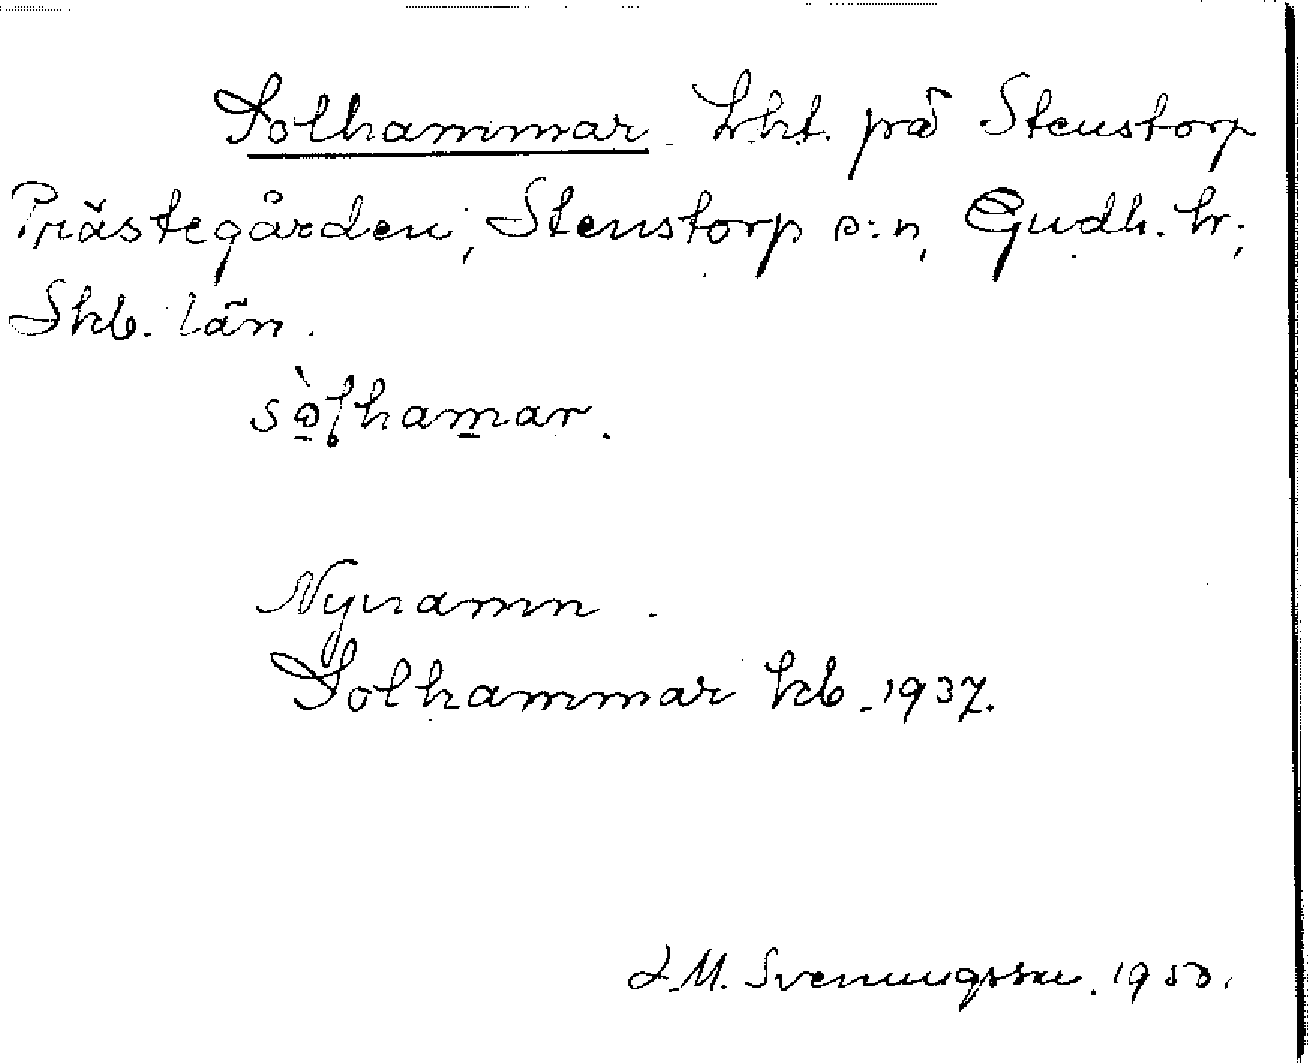 Solhammar lht. på Stenstorp
Prästegården, Stenstorp s:n, Gudh. hr;
Skb. län.
sòlhamar.
Nynamn.
Solhammar kb. 1937.
Svenungsson. 1950.